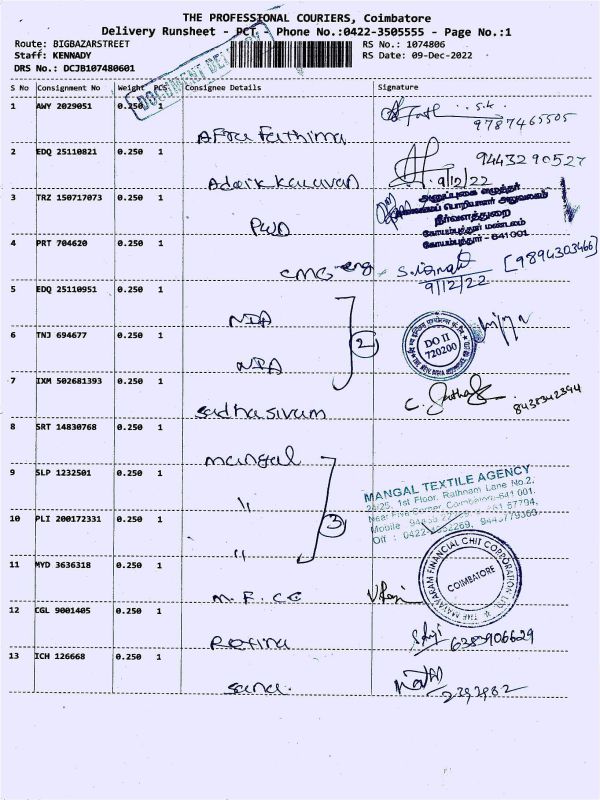 THE PROFESSIONAL COURIERS, Coimbatore
Delivery Runsheet - PCT - Phone No.:0422-3505555 - Page No.:1
Route: BIGBAZARSTREET RS No.: 1074806
Staff: KENNADY RS Date: 09-Dec-2022
DRS No.: DCJB107480601
DOCUMENT
S No Consignment No Weight PCS Consignee Details Signature
1 AWY 2029051 0.250 Afra Fathima 9787465505
2 EDQ 25110821 0.250 1 9443290527
9/12/22
3 TRZ 150717073 0.250 1 PWD
அனுப்புகை எழுத்தர்
நீர்வளத்துறை
கோயம்புத்தூர் மண்டலம்
கோயம்புத்தூர் - 641 001
4 PRT 704620 0.250 1 CMC-eng [9894303466]
9/12/22
5 EDQ 25110951 0.250 1 NIA
2
DO II
720200
6 TNJ 694677 0.250 1 NIA
7 IXM 502681393 0.250 1 Sadhasivam 8438342394
8 SRT 14830768 0.250 1 Mangal
9 SLP 1232501 0.250 1 "
3
MANGAL TEXTILE AGENCY
24/25, 1st Floor, Rathnam Lane No.2,
Near Five Corner, Coimbatore-641 001.
Mobile
Off : 9445779369
10 PLI 200172331 0.250 1 "
11 MYD 3636318 0.250 1 M.F.CC
THE MAYAVARAM FINANCIAL CHIT CORPORATION LTD
COIMBATORE
12 CGL 9001405 0.250 1 Retina 6383906629
13 ICH 126668 0.250 1 Sana. 2392982